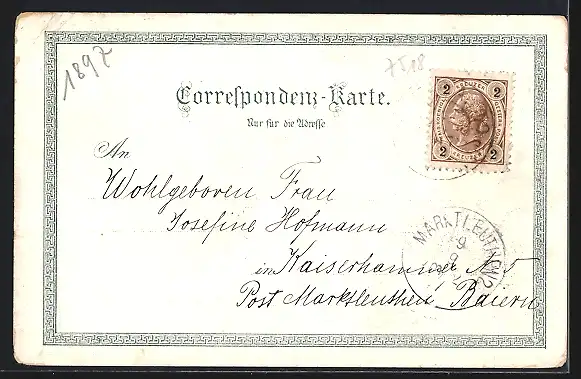 1897
7518
Correspondenz-Karte.
Nur für die Adresse
2 KREUZER 2
2 KREUZER 2
An
Wohlgeboren Frau
Josefine Hofmann
in Kaiserhammer No 5
Post Marktleuthen Baiern
MARKTLEUTHEN
9